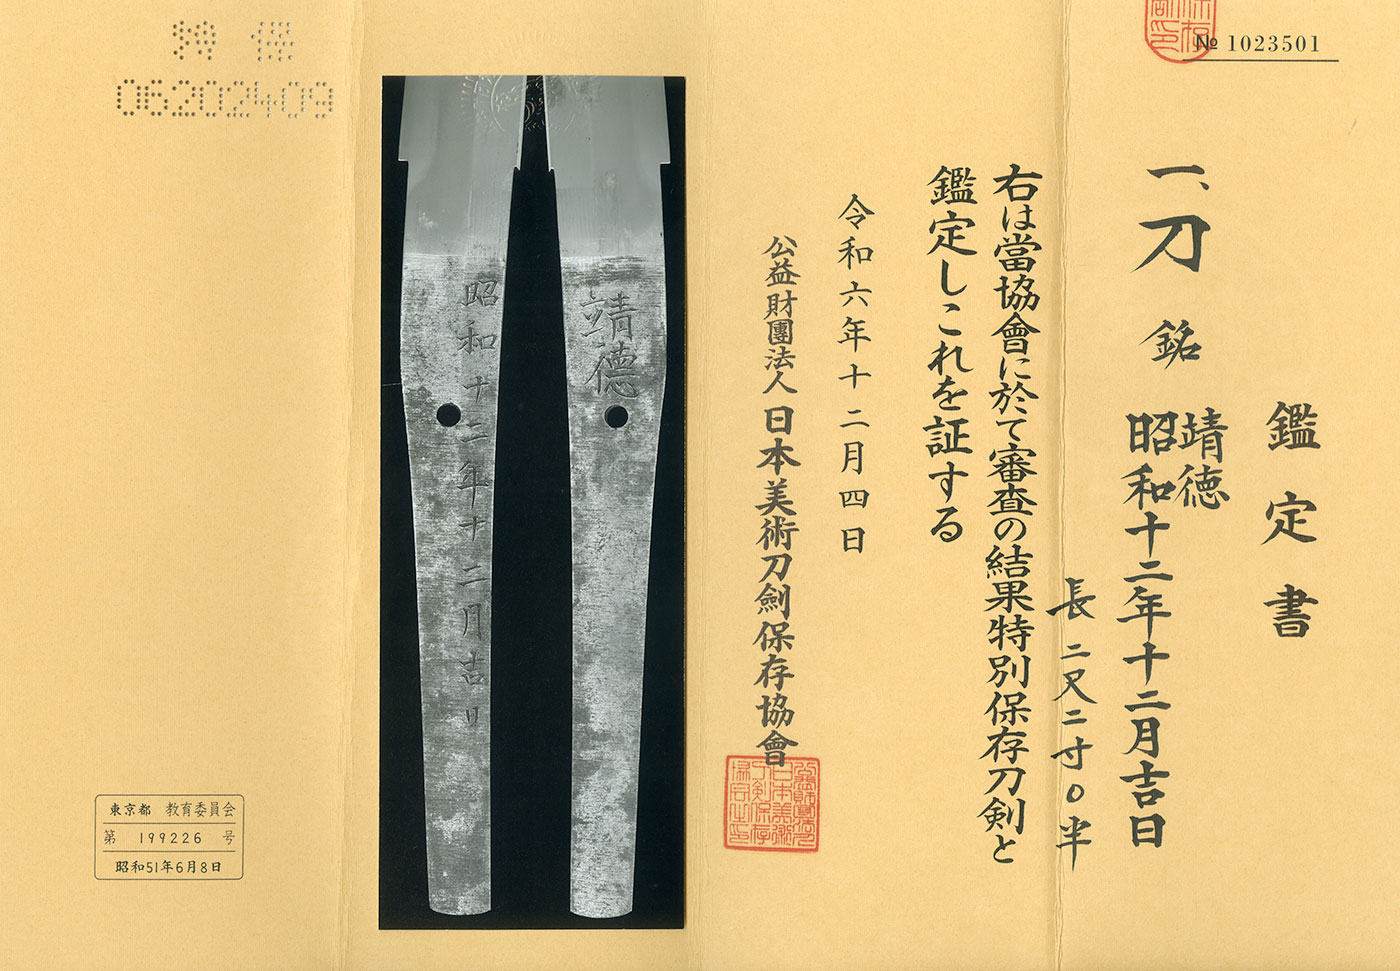 № 1023501
鑑定書
一、刀 銘 靖徳
昭和十二年十二月吉日
長 二尺二寸０半
右は當協會に於て審査の結果特別保存刀剣と
鑑定しこれを証する
令和六年十二月四日
公益財團法人 日本美術刀劍保存協會
靖徳
昭和十二年十二月吉日
06202409
東京都 教育委員会
第 199226 号
昭和51年6月8日